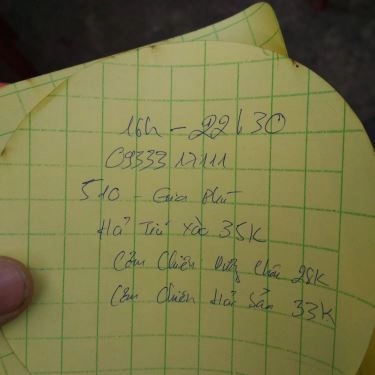 16h - 22h30
0933317111
510 - Gia Phú
Hải Triề xào 35K
Cơm chiên Dương Châu 28K
Cơm chiên Hải Sản 33K